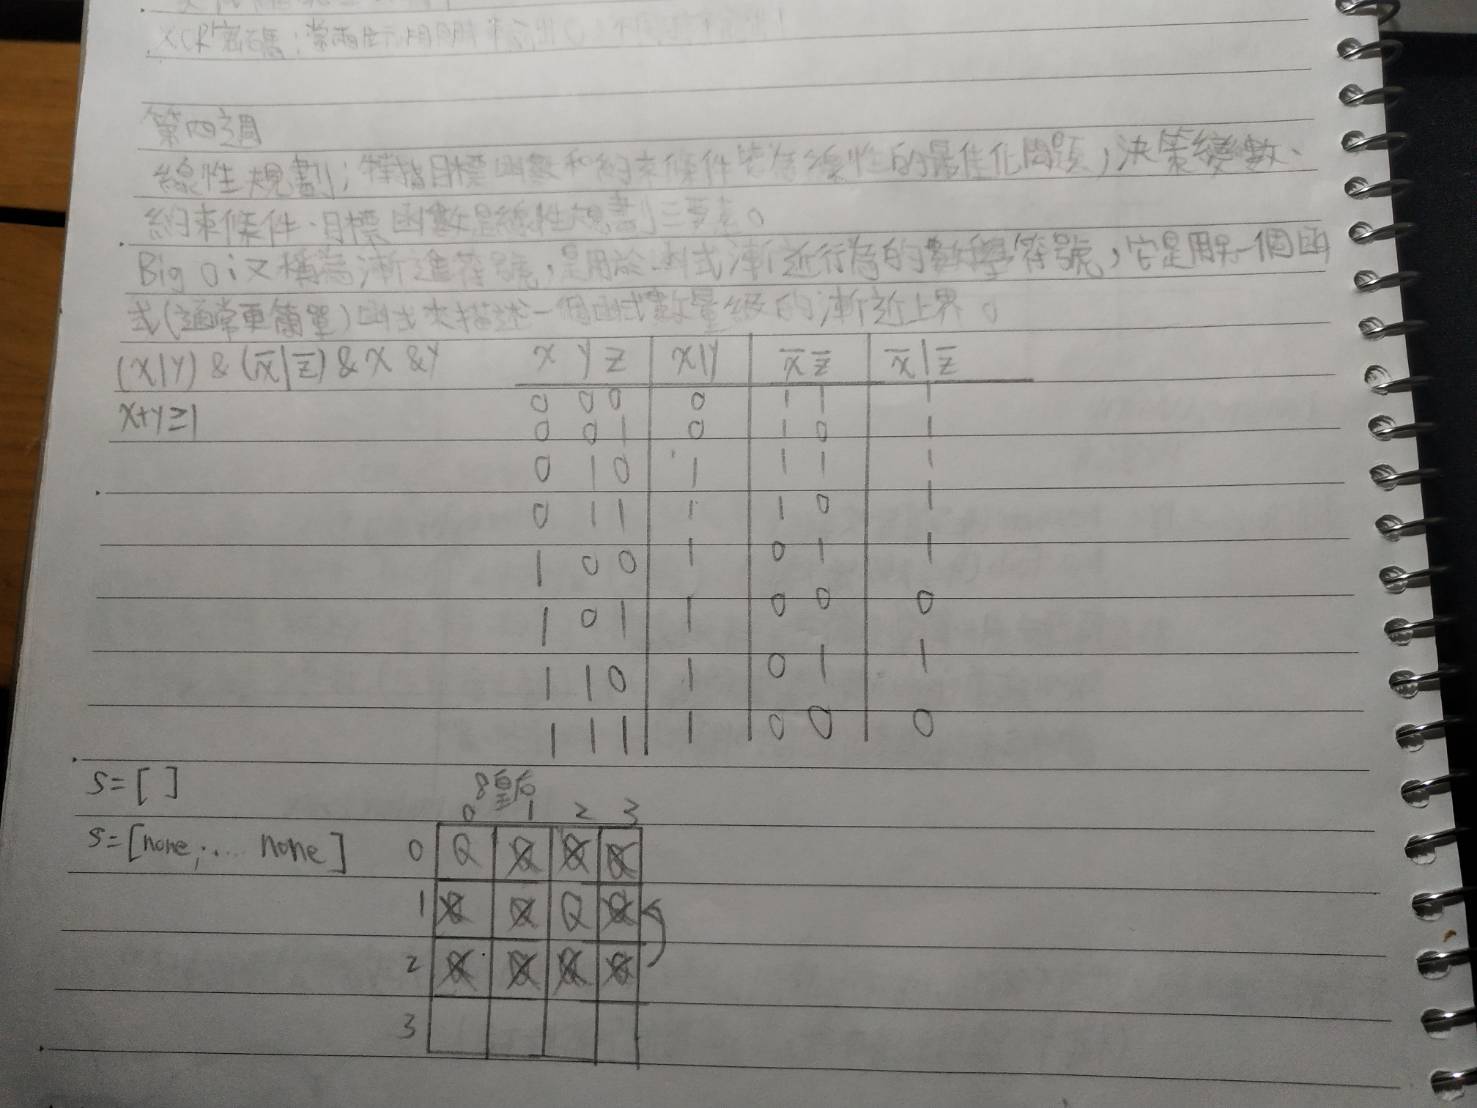 XOR密碼;當兩位元相同時
第四週
線性規劃;特指目標函數和約束條件皆為線性的最佳化問題,決策變數、
約束條件、目標函數是線性規劃三要素。
Big O;又稱為漸進符號,是用於函式漸近行為的數學符號,它是用另一個函
式(通常更簡單)函式來描述一個函式數量級的漸近上界。
(x|y) & (x̅|z̅) & x & y
x+y≥1
x y z x|y x̅ z̅ x̅|z̅
0 0 0 0 1 1 1
0 0 1 0 1 0 1
0 1 0 1 1 1 1
0 1 1 1 1 0 1
1 0 0 1 0 1 1
1 0 1 1 0 0 0
1 1 0 1 0 1 1
1 1 1 1 0 0 0
s=[ ]
8皇后
s=[none,.... none]
0 1 2 3
0 Q Q Q Q
1 Q Q Q Q
2 Q Q Q Q
3